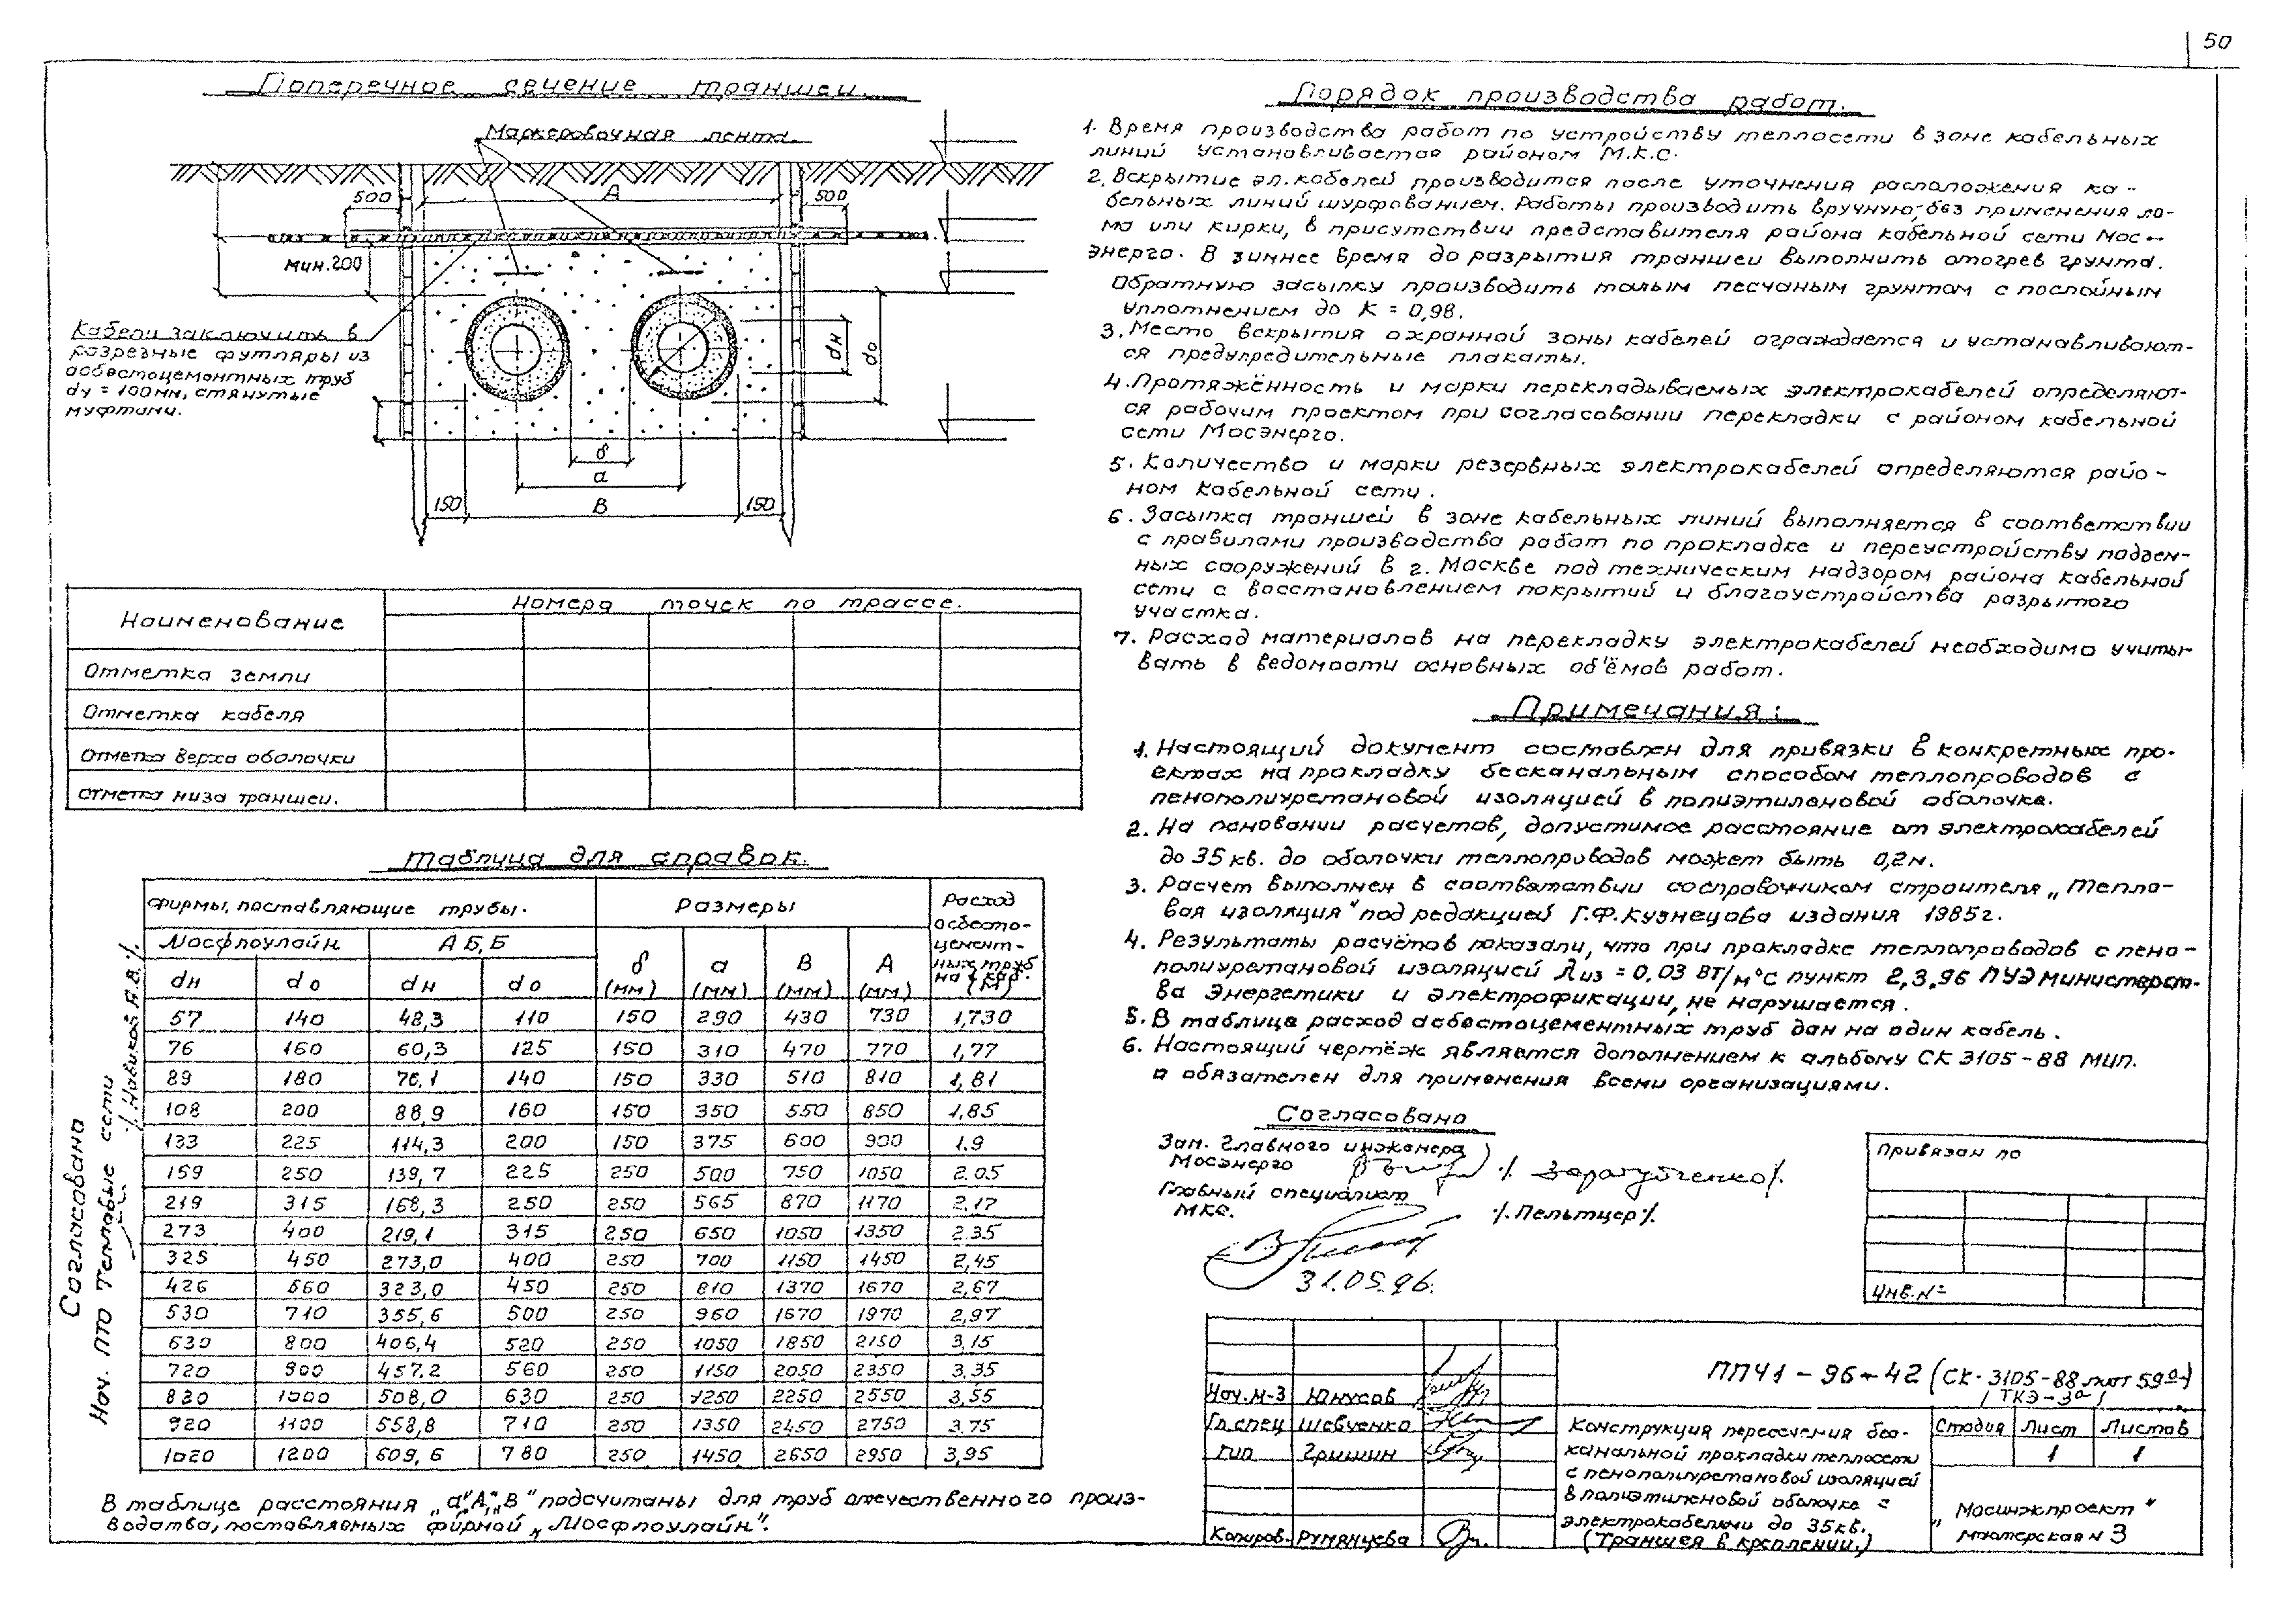 50
Поперечное сечение траншеи.
Маркеровочная лента.
500
А
500
мин.200
Кабели заключить в
разрезные футляры из
асбестоцементных труб
dу = 100мм, стянутые
муфтами.
dн
dо
б
а
150
В
150
Наименование
Номера точек по трассе.
Отметка земли
Отметка кабеля
Отметка верха оболочки
отметка низа траншеи.
Таблица для справок.
Фирмы, поставляющие трубы.
Размеры
Расход
асбесто-
цемент-
ных труб
на 1 каб.
(м)
Мосфлоулайн
АБ,Б
dн dо dн dо б (мм) а (мм) В (мм) А (мм)
57 140 48,3 110 150 290 430 730 1,730
76 160 60,3 125 150 310 470 770 1,77
89 180 76,1 140 150 330 510 810 1,81
108 200 88,9 160 150 350 550 850 1,85
133 225 114,3 200 150 375 600 900 1.9
159 250 139,7 225 250 500 750 1050 2.05
219 315 168,3 250 250 565 870 1170 2,17
273 400 219,1 315 250 650 1050 1350 2.35
325 450 273,0 400 250 700 1150 1450 2,45
426 560 323,0 450 250 810 1370 1670 2,67
530 710 355,6 500 250 960 1670 1970 2,97
630 800 406,4 520 250 1050 1850 2150 3,15
720 900 457.2 560 250 1150 2050 2350 3,35
820 1000 508,0 630 250 1250 2250 2550 3,55
920 1100 558,8 710 250 1350 2450 2750 3.75
1020 1200 609,6 780 250 1450 2650 2950 3,95
В таблице расстояния „а",„А",„В" подсчитаны для труб отечественного произ-
водства, поставляемых фирмой „Мосфлоулайн".
Согласовано
Нач. ПТО Тепловые сети
/. Новиков А.В. /.
Порядок производства работ.
1. Время производства работ по устройству теплосети в зоне кабельных
линий устанавливается районом М.К.С.
2. Вскрытие эл.кабелей производится после уточнения расположения ка-
бельных линий шурфованием. Работы производить вручную, без применения ло-
ма или кирки, в присутствии представителя района кабельной сети Мос-
энерго. В зимнее время до разрытия траншеи выполнить отогрев грунта.
Обратную засыпку производить талым песчаным грунтом с послойным
уплотнением до К = 0,98.
3. Место вскрытия охранной зоны кабелей ограждается и устанавливают-
ся предупредительные плакаты.
4. Протяжённость и марки перекладываемых электрокабелей определяют-
ся рабочим проектом при согласовании перекладки с районом кабельной
сети Мосэнерго.
5. Количество и марки резервных электрокабелей определяются райо-
ном кабельной сети.
6. Засыпка траншей в зоне кабельных линий выполняется в соответствии
с правилами производства работ по прокладке и переустройству подзем-
ных сооружений в г. Москве под техническим надзором района кабельной
сети с восстановлением покрытий и благоустройства разрытого
участка.
7. Расход материалов на перекладку электрокабелей необходимо учиты-
вать в ведомости основных объёмов работ.
Примечания:
1. Настоящий документ составлен для привязки в конкретных про-
ектах на прокладку бесканальным способом теплопроводов с
пенополиуретановой изоляцией в полиэтиленовой оболочке.
2. На основании расчетов, допустимое расстояние от электрокабелей
до 35 кв. до оболочки теплопроводов может быть 0,2м.
3. Расчет выполнен в соответствии со справочником строителя „Тепло-
вая изоляция" под редакцией Г.Ф.Кузнецова издания 1985г.
4. Результаты расчётов показали, что при прокладке теплопроводов с пено-
полиуретановой изоляцией λиз = 0,03 Вт/м°С пункт 2,3,96 ПУЭ Министерст-
ва Энергетики и электрофикации, не нарушается.
5. В таблице расход асбестоцементных труб дан на один кабель.
6. Настоящий чертёж является дополнением к альбому СК 3105-88 МИП.
и обязателен для применения всеми организациями.
Согласовано
Зам. Главного инженера
Мосэнерго
Главный специалист
МКС.
/. Пельтцер /.
31.05.96.
Привязан по
Инв.N°
ППЧ1-96-42 (СК-3105-88 лист 59а)
/ТКЭ-3а/
Нач.М-3 Юнусов
Гл.спец Шевченко
ГИП Гришин
Копиров. Румянцева
Конструкция пересечения бес-
канальной прокладки теплосети
с пенополиуретановой изоляцией
в полиэтиленовой оболочке с
электрокабелями до 35кв.
(Траншея в креплении.)
Стадия Лист Листов
1 1
„Мосинжпроект"
мастерская N 3